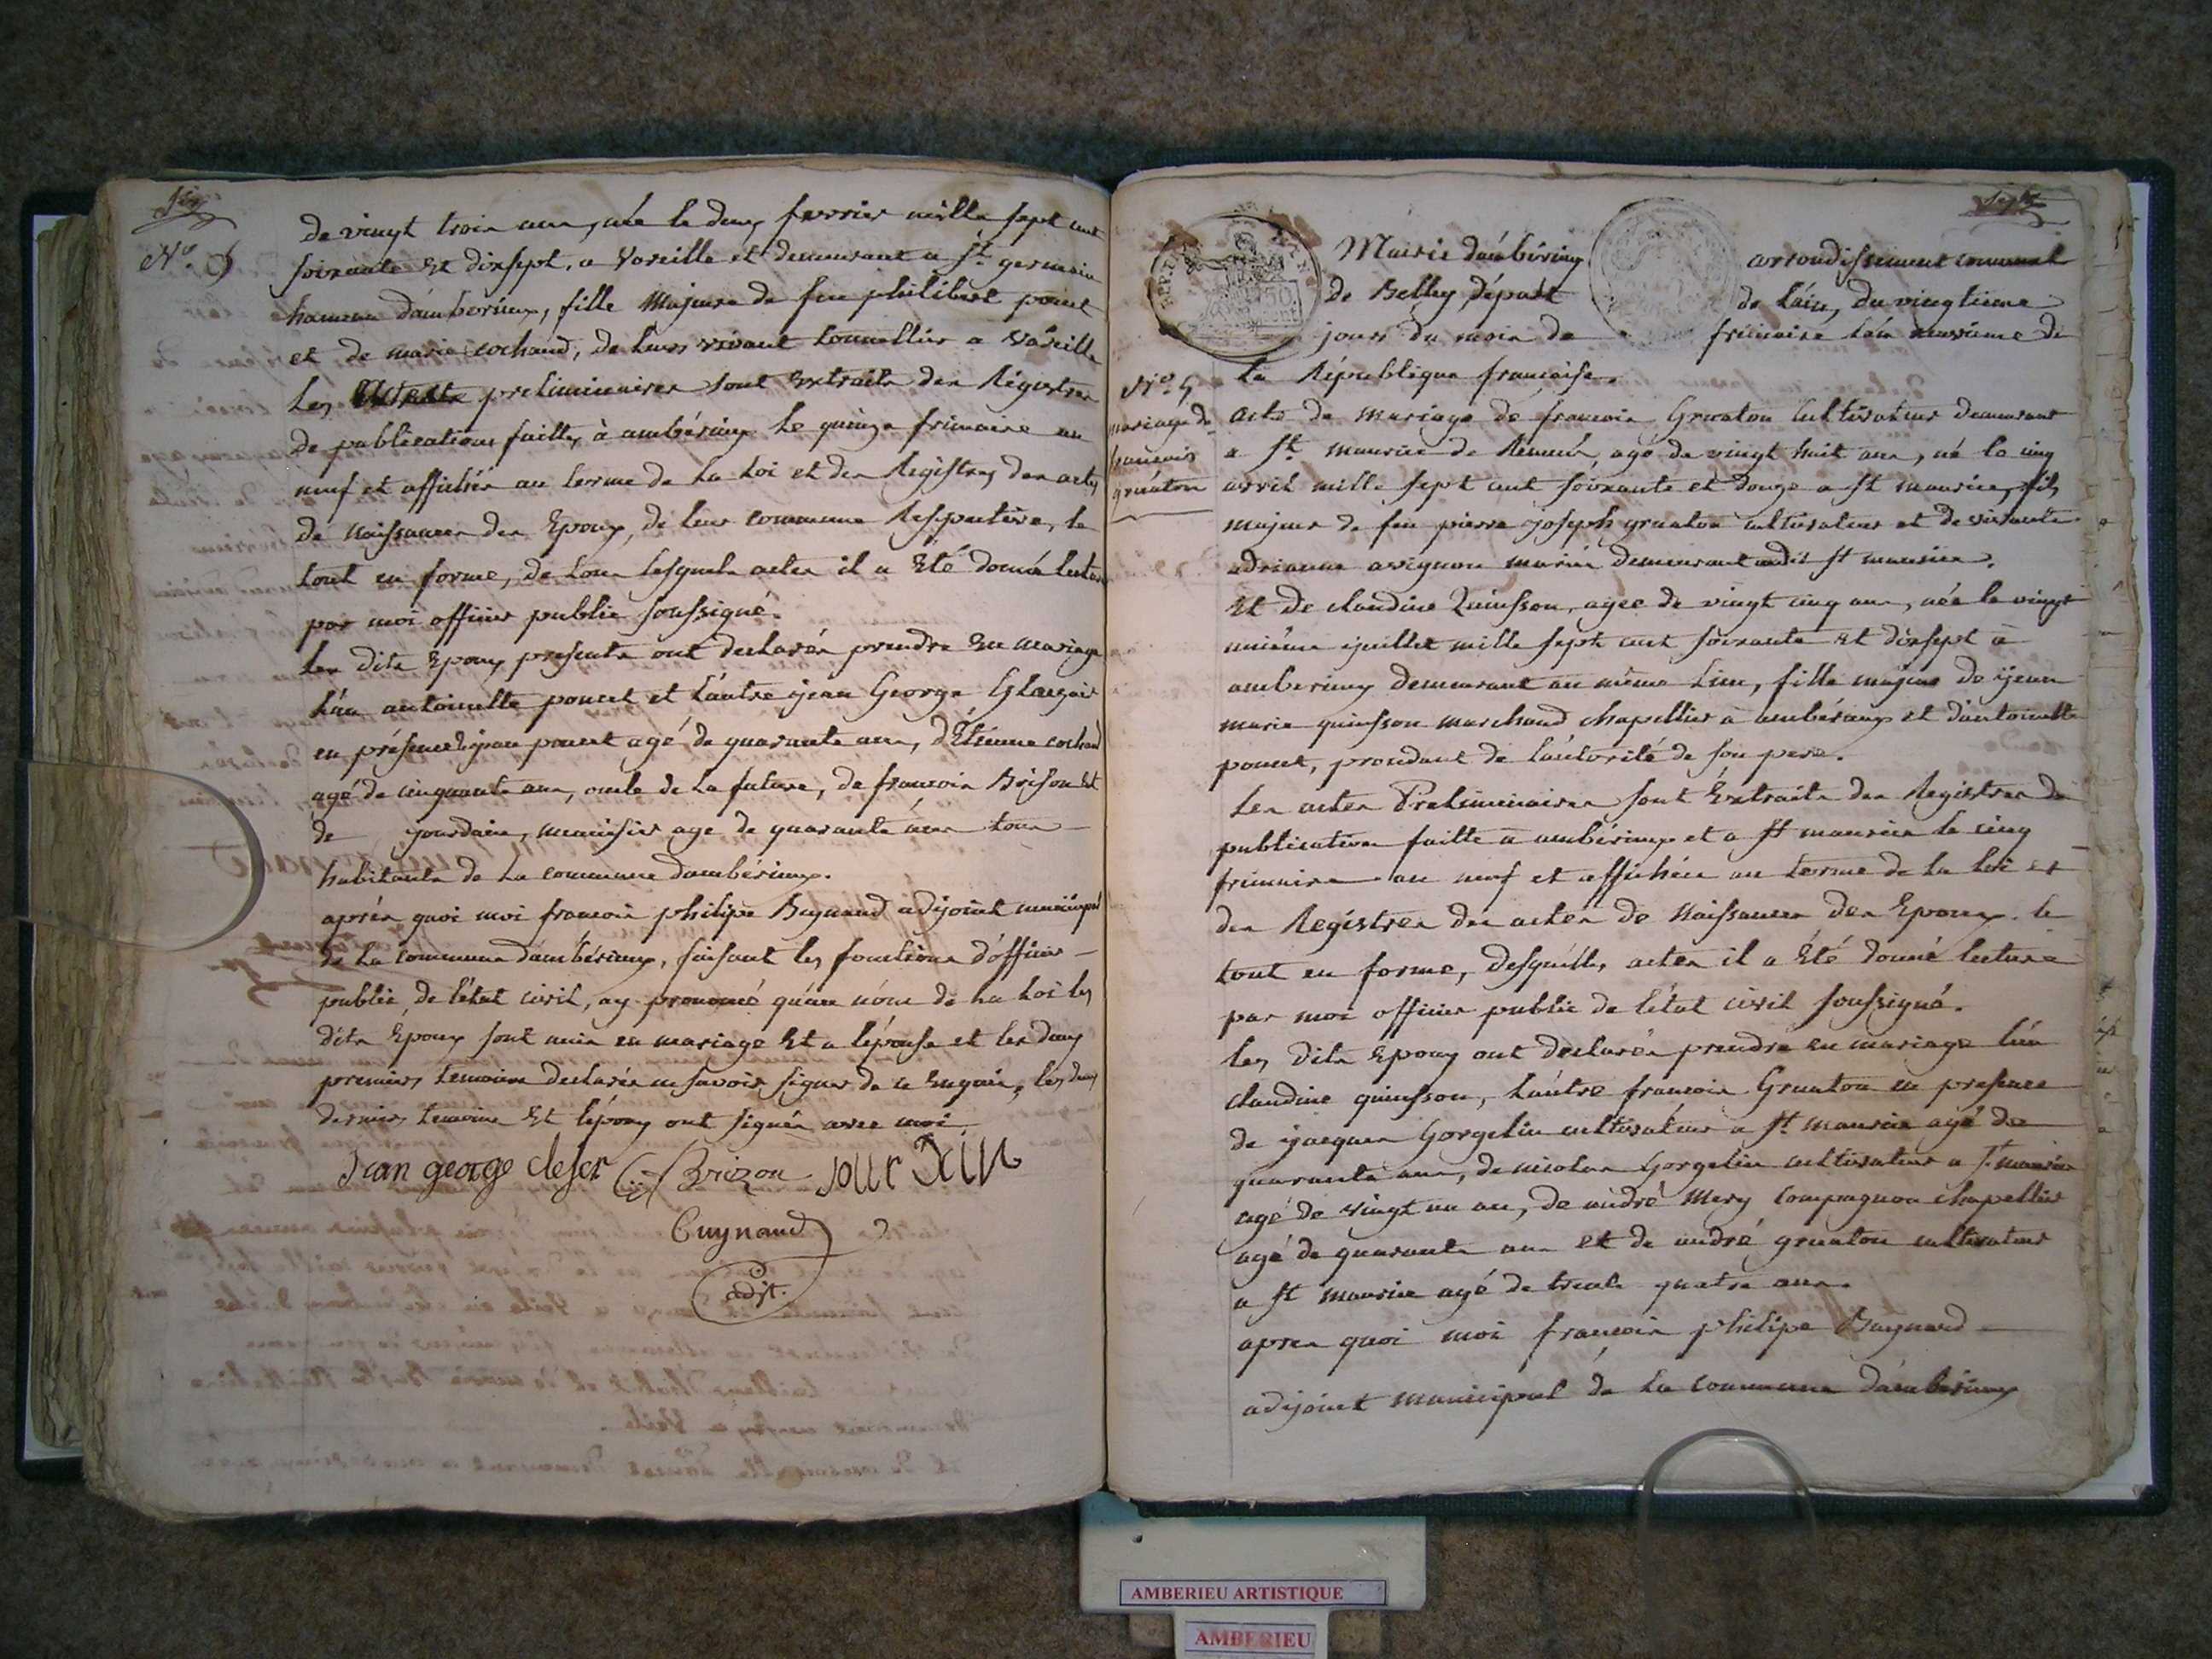 six
N.o
de vingt trois ans, née le deux fevrier mille sept cent
soixante et dixsept, a Vareille et demeurant a St. germain
hameau d'ambérieux, fille majeure de feu philibert poncet
et de marie cochand, de leurs vivant tonnellier a Vareille
les preliminaires sont extraits des Régistres
de publications faittes à ambérieux le quinze frimaire an
neuf et affichés au terme de la Loi et des Régistres des actes
de Naissances des Epoux, de leur commune Respective, le
tout en forme, de tous lesquels actes il a Eté donné lecture
par moi officier public soussigné.
Les dits Epoux presents ont declarés prendre En mariage
L'un antoinette poncet et l'autre jean George
en présence de jean poncet agé de quarante ans, d'Etienne cochand
agé de cinquante ans, oncle de la future, de francois Brison et
de jourdain, menuisier age de quarante ans tous
habitants de La commune dambérieux.
après quoi moi francois philipe Buynand adjoint municipal
de La commune dambérieux, faisant les fonctions d'officier
public de l'état civil, ay prononcé qu'au nom de La Loi les
dits Epoux sont unis en mariage Et a l'épouse et les deux
premiers temoins declarés ne savoir signer de ce Enquis, les deux
derniers temoins Et l'époux ont signés avec moi.
Jean george cleser Brizon jourdain
Buynand
adjt.
sept
Mairie dambérieux arrondissement communal
de Belley, départ de L'ain, du vingtieme
jours du mois de frimaire L'an neuvieme de
La République francaise.
N.o 5
mariage de
francois
gruaton
acte de mariage de francois Gruaton Cultivateur demeurant
a St. maurice de Remens, agé de vingt huit ans, né le cinq
avril mille sept cent soixante et douze a St maurice, fils
majeur de feu pierre joseph gruaton cultivateur et de vivante
adrianne avignon mariés demeurant audit St maurice.
Et de claudine Quinsson, agee de vingt cinq ans, née le vingt
juillet mille sept cent soixante et dixsept à
amberieux demeurant au même Lieu, fille majeur de jean
marie quinsson marchand chapellier à ambérieux et d'antoinette
poncet, procedant de l'autorité de son pere.
Les actes Preliminaires sont Extraits des Registres de
publication faitte à ambérieux et a St maurice le cinq
frimaire an neuf et affichées au terme de la loi et
des Registres des actes de Naissances des Epoux. le
tout en forme, desquelles actes il a Eté donné lecture
par moi officier public de l'état civil soussigné.
les dits Epoux ont declarés prendre en mariage l'un
claudine quinsson, L'autre francois Gruaton en presence
de jacques Gorgelin cultivateur a St maurice agé de
quarante ans, de nicolas Gorgelin cultivateur a St. maurice
agé de vingt un an, de andré Mery Compagnon chapellier
agé de quarante ans et de andré gruaton cultivateur
a St maurice agé de trente quatre ans.
apres quoi moi francois philipe Buynand
adjoint municipal de La commune d'amberieux
AMBERIEU ARTISTIQUE
AMBERIEU